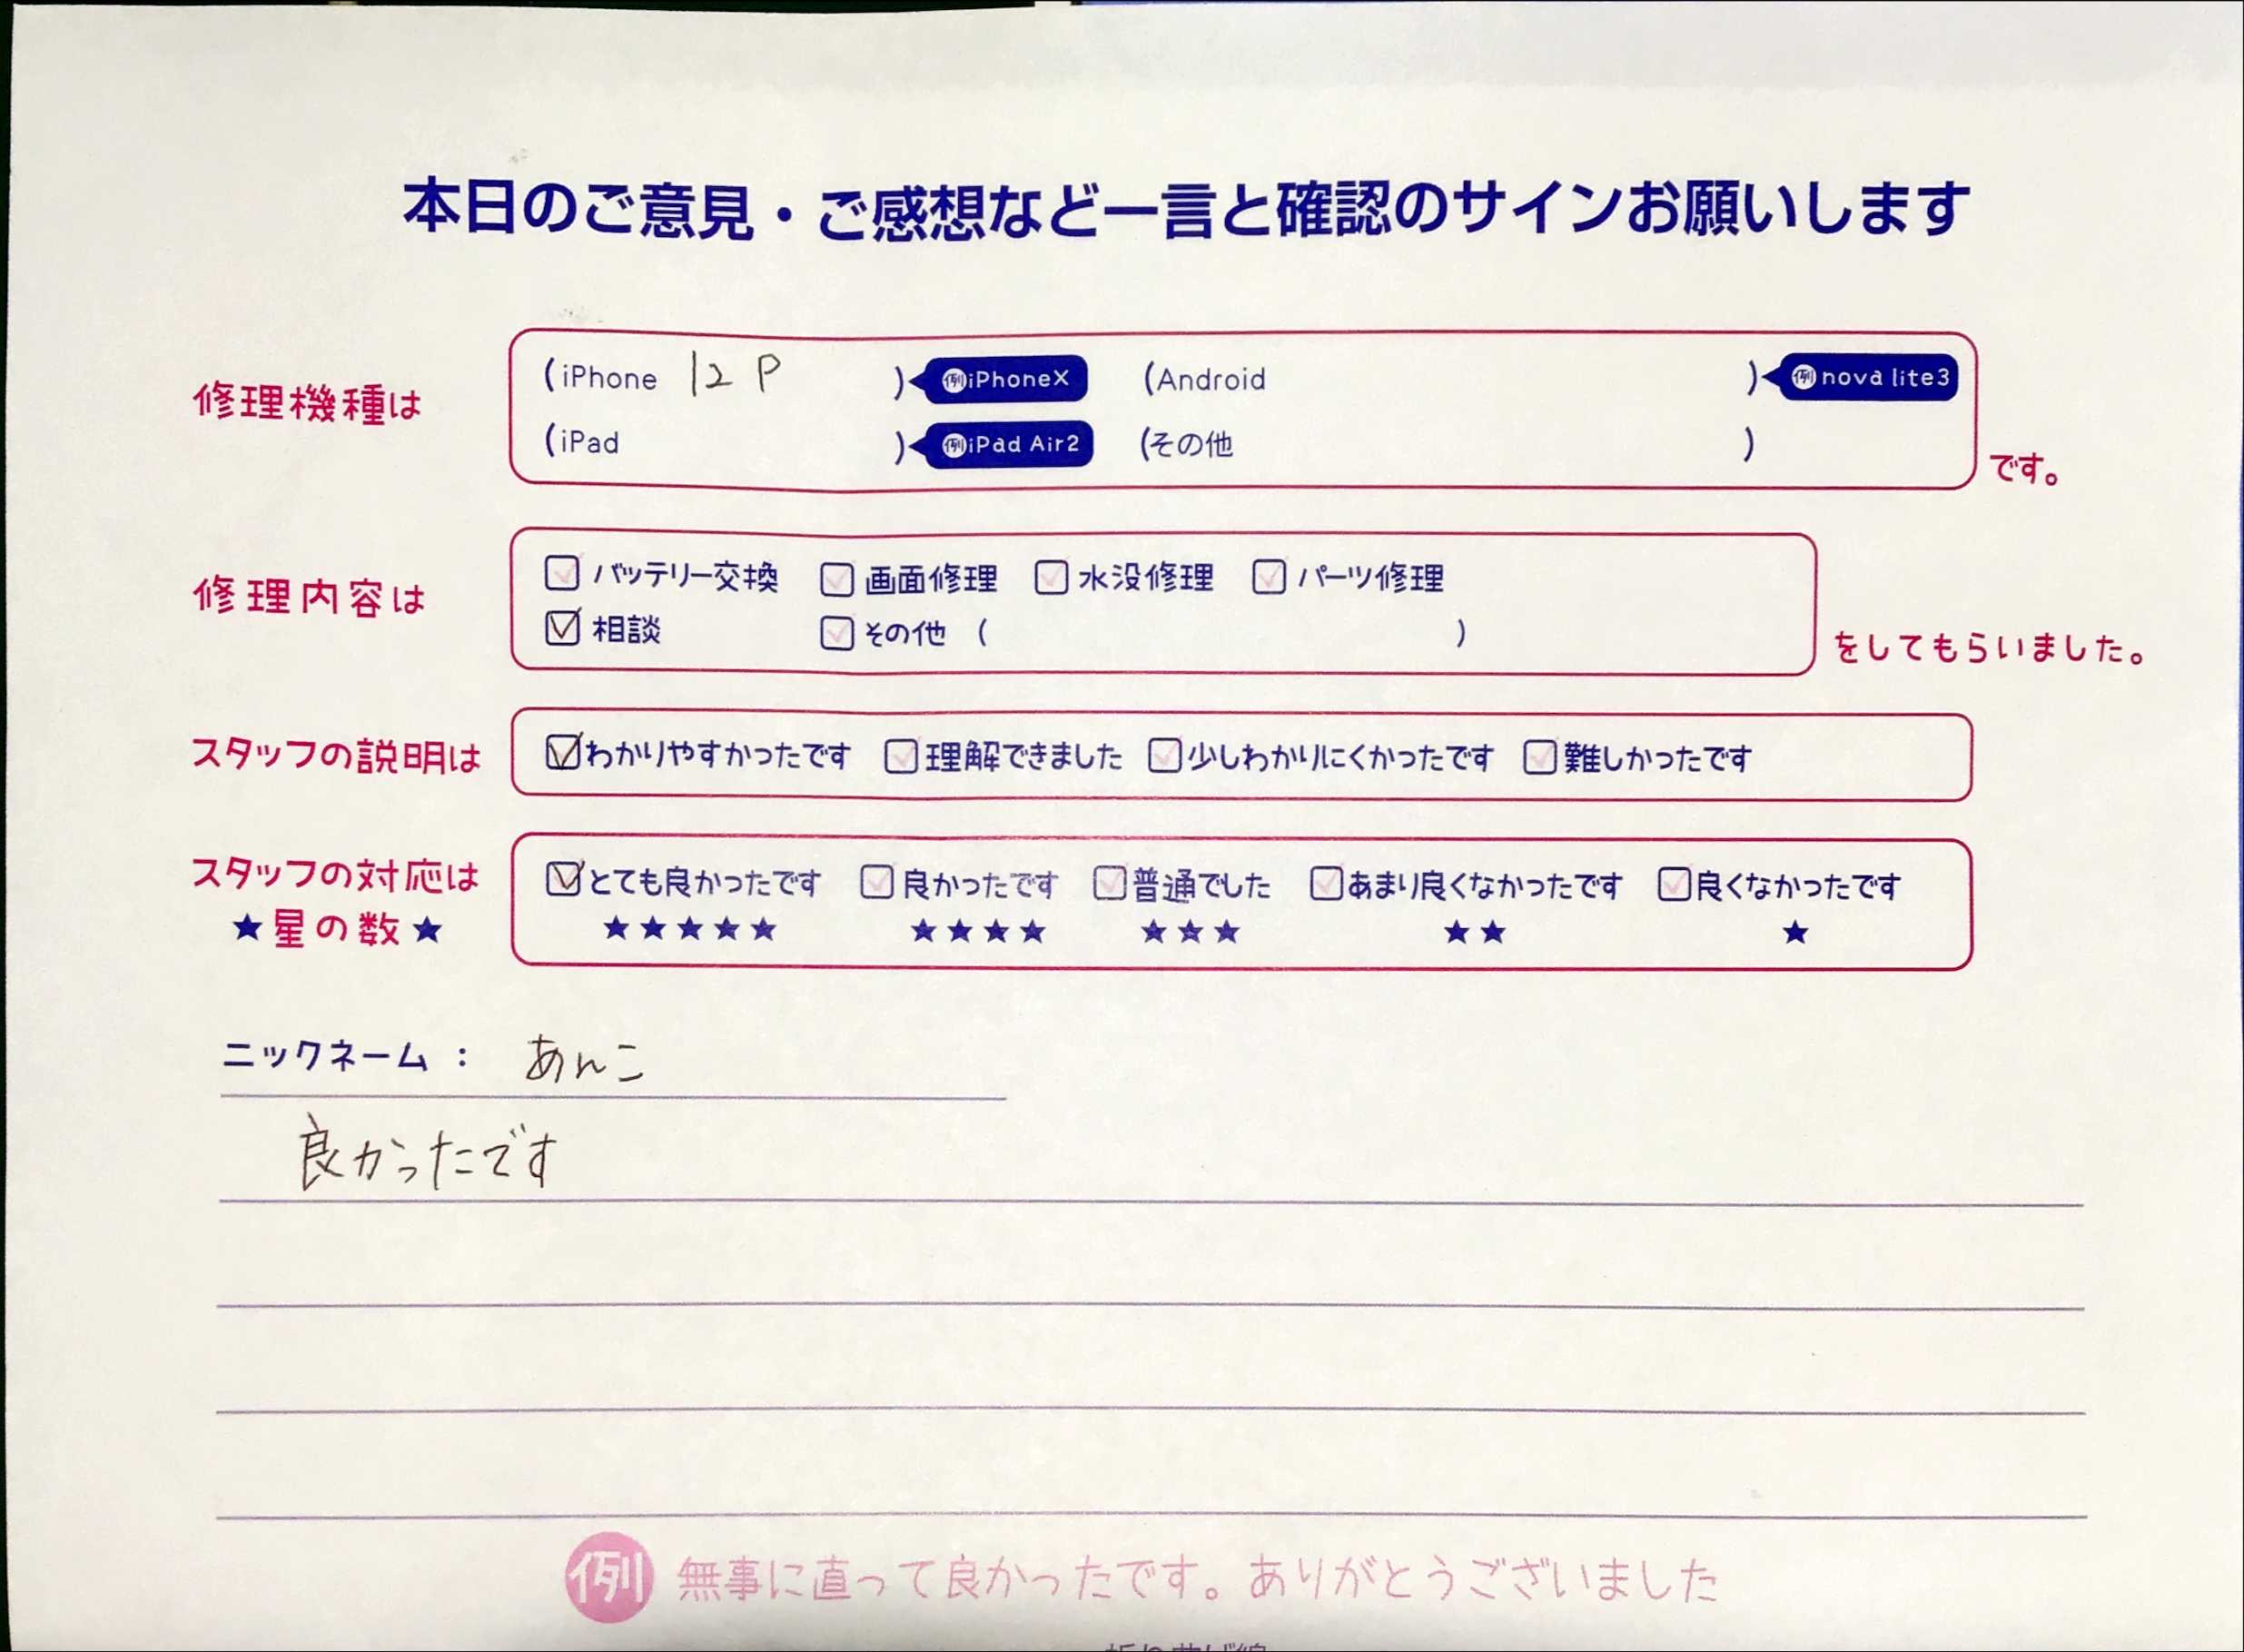 本日のご意見・ご感想など一言と確認のサインお願いします
修理機種は
(iPhone 12 P ) 例iPhoneX (Android ) 例nova lite3
(iPad ) 例iPad Air2 (その他 )
です。
修理内容は
バッテリー交換 画面修理 水没修理 パーツ修理
相談 その他 ( )
をしてもらいました。
スタッフの説明は
わかりやすかったです 理解できました 少しわかりにくかったです 難しかったです
スタッフの対応は
★星の数★
とても良かったです 良かったです 普通でした あまり良くなかったです 良くなかったです
★★★★★ ★★★★ ★★★ ★★ ★
ニックネーム： あんこ
良かったです
例 無事に直って良かったです。ありがとうございました